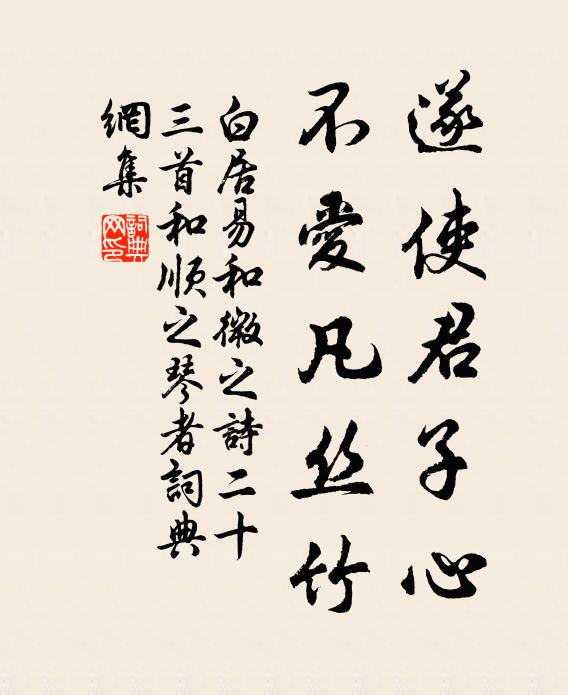 遂使君子心
不愛凡丝竹
白居易和微之詩二十
三首和順之琴者詞典
網集
詞典
网印